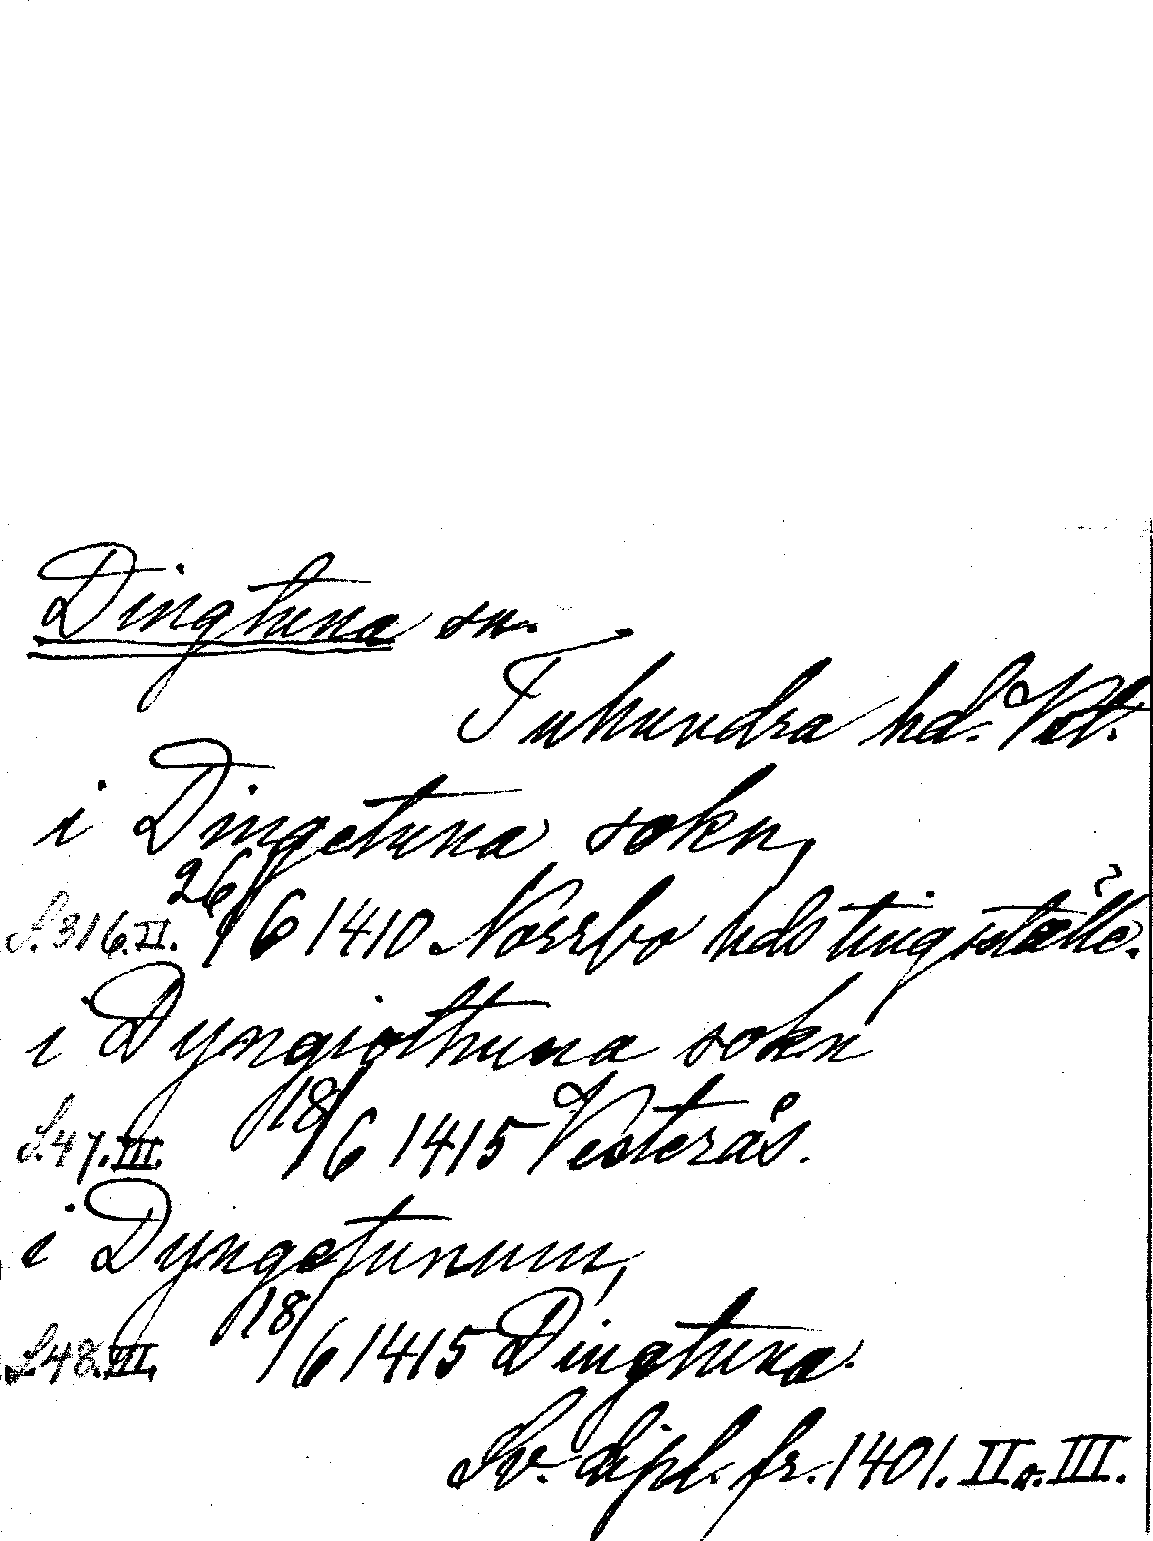 Dingtuna sn.
Tuhundra hd. Vstl.
i Dingetuna sokn,
S. 316. II. 26/6 1410 Norrbo hds tingställe.
i Dyngiothuna sokn
S. 47. III. 18/6 1415 Vesterås.
i Dyngetunum,
S. 48. III. 18/6 1415 Dingtuna.
Sv. dipl. fr. 1401. II o. III.